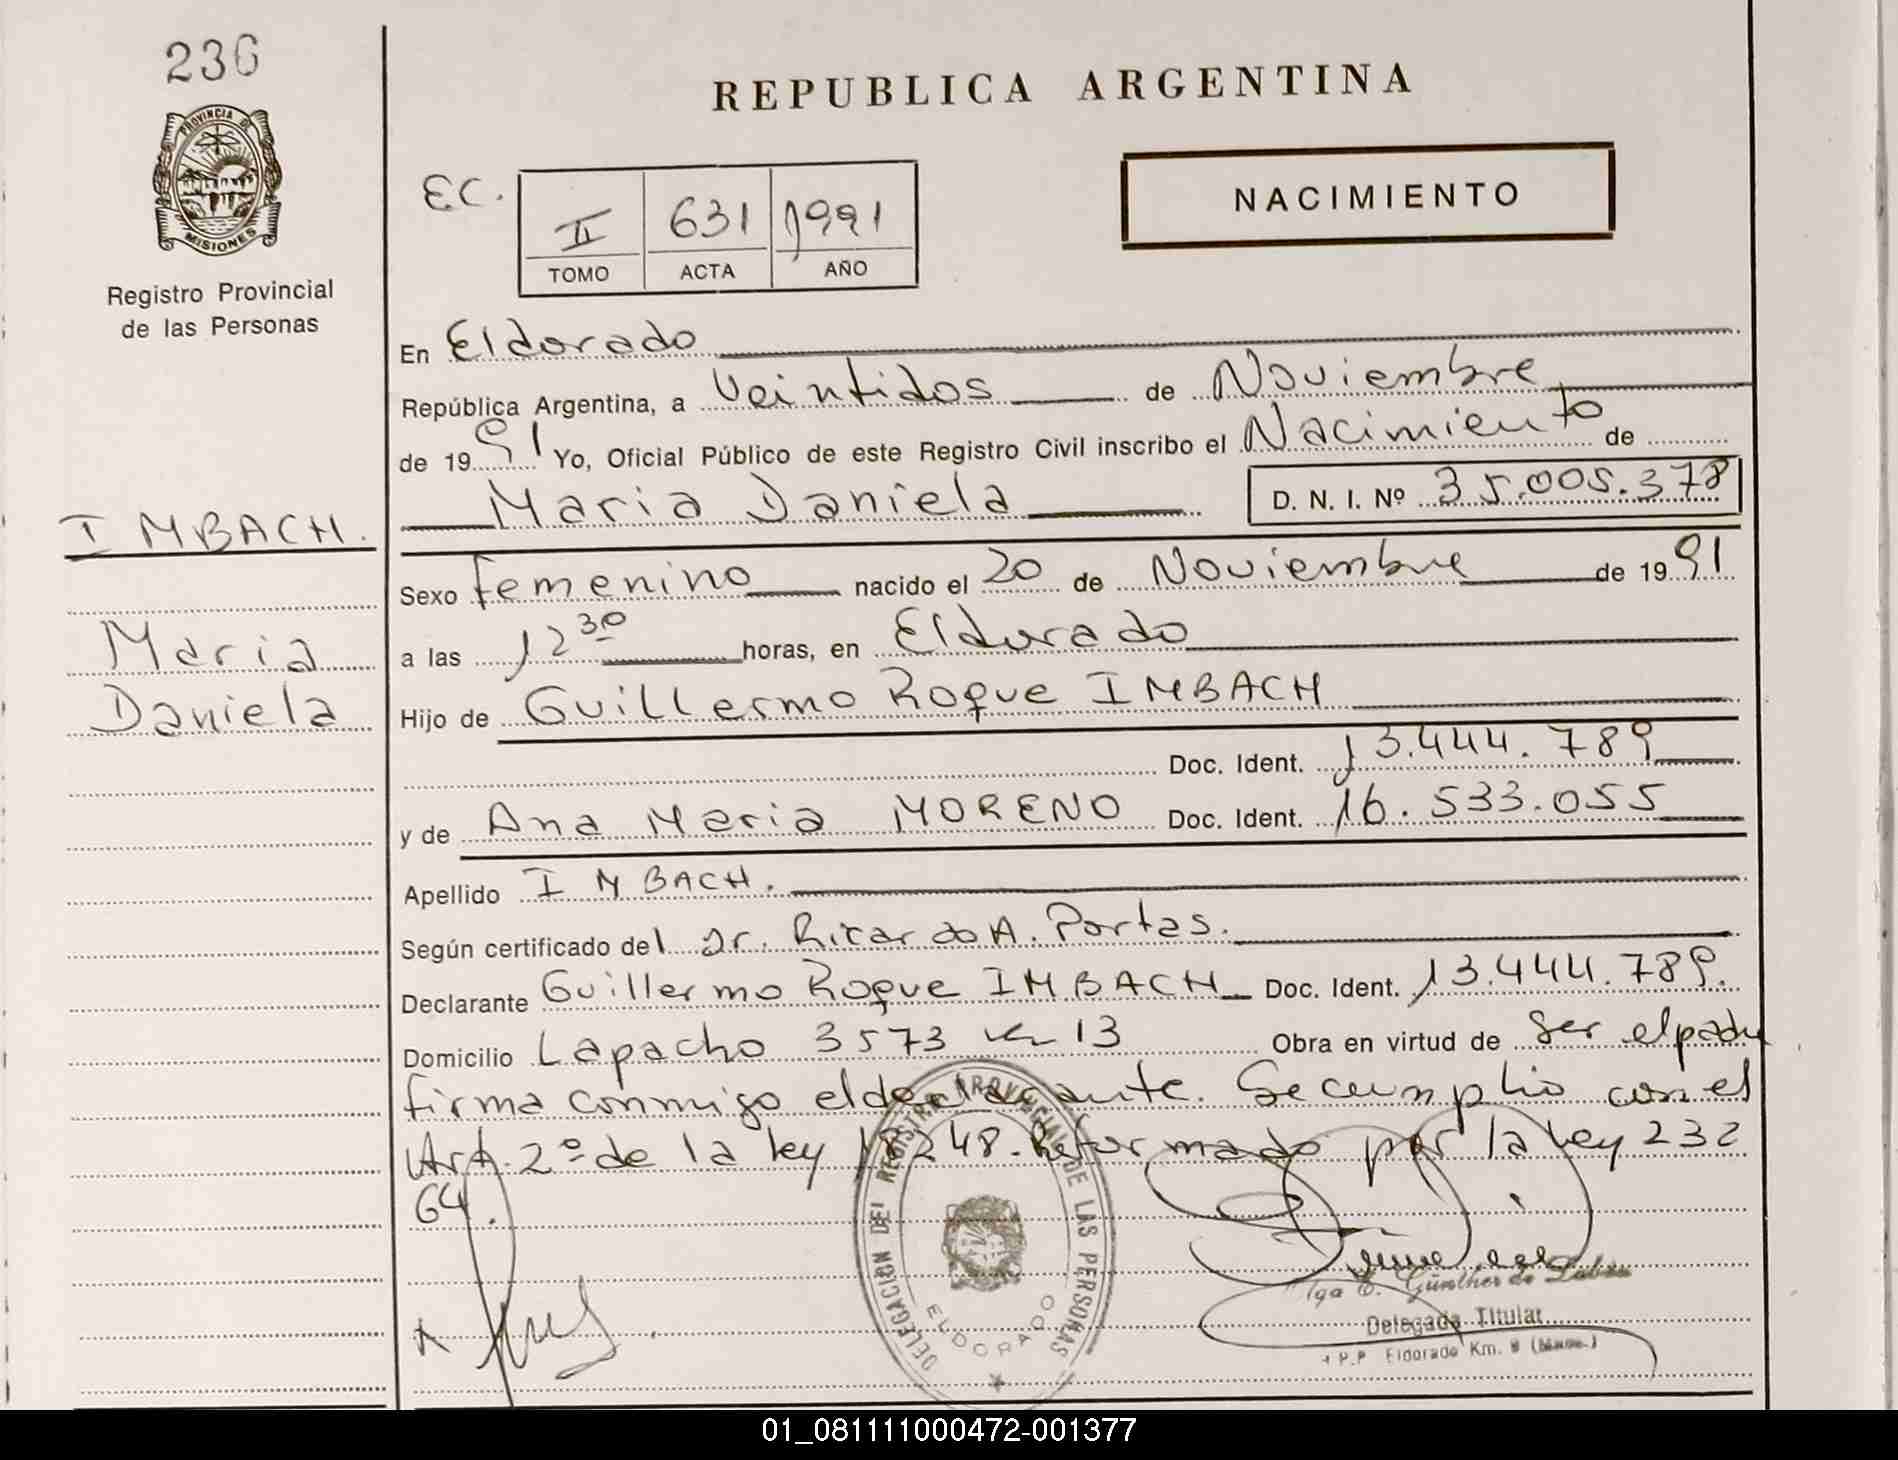 236
PROVINCIA DE
MISIONES
Registro Provincial
de las Personas
REPUBLICA ARGENTINA
EC.
II 631 1991
TOMO ACTA AÑO
NACIMIENTO
En Eldorado
República Argentina, a Veintidos de Noviembre
de 1991 Yo, Oficial Público de este Registro Civil inscribo el Nacimiento de
Maria Daniela D. N. I. Nº 35.005.378
IMBACH.
Maria
Daniela
Sexo femenino nacido el 20 de Noviembre de 1991
a las 12 30 horas, en Eldorado
Hijo de Guillermo Roque IMBACH
Doc. Ident. 13.444.789
y de Ana Maria MORENO Doc. Ident. 16.533.055
Apellido IMBACH.
Según certificado del Dr. Ricardo A. Portas.
Declarante Guillermo Roque IMBACH Doc. Ident. 13.444.789.
Domicilio Lapacho 3573 km 13 Obra en virtud de Ser el padre
firma conmigo el declarante. Se cumplio con el
Art. 2º de la ley 18248. Reformado por la Ley 232
64.
DELEGACION DEL REGISTRO PROVINCIAL DE LAS PERSONAS
ELDORADO
Günther de
Delegada Titular
Eldorado Km. 9
01_081111000472-001377